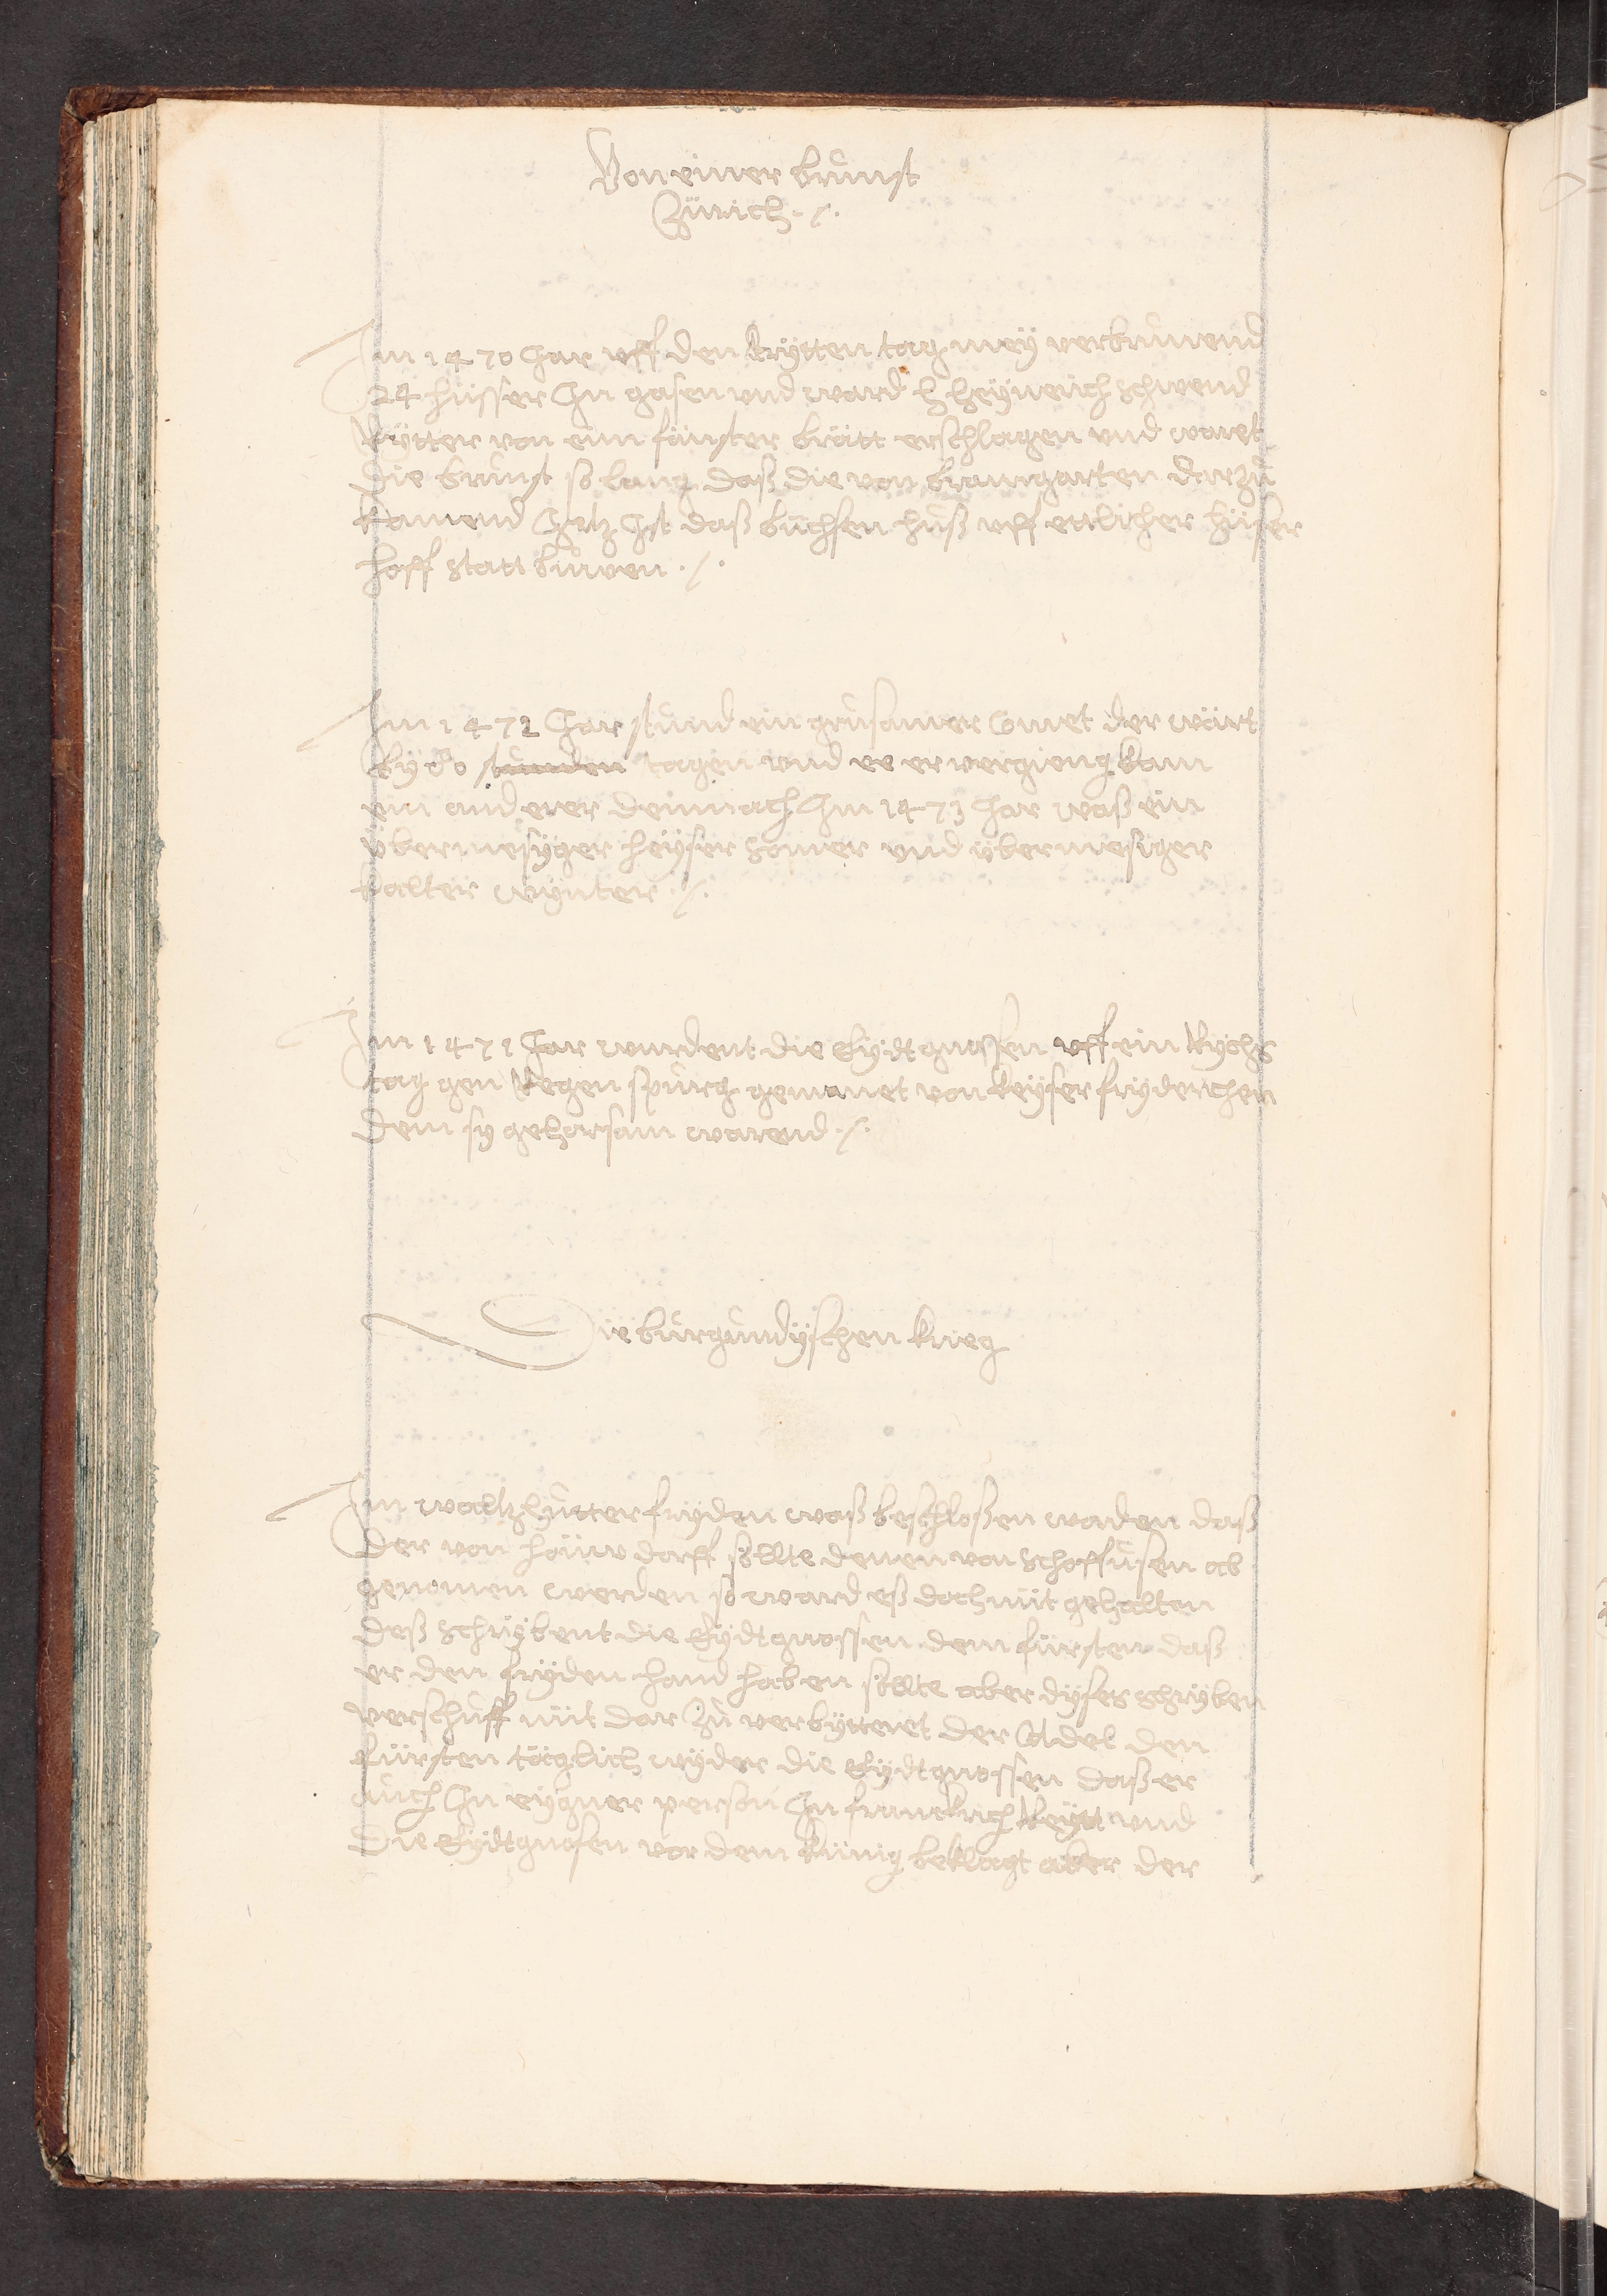 Von einer brunst
Zürich ./.
Im 1470 Jar uff den drytten tag mey verbrunend
24 hüsser In gasen und ward h heyneich schwend
Rytter von eim fänster brätt erschlagen und waret
die brunst so lang daß die von bramgarten darzů
kamend Jetz Ist daß büchsen huß uff ettlicher hüser
hoff statt buwen ./.
Im 1472 Jar stund ein grusamer Comet der wärt
by 80 stunden tagen und ee er vergieng kam
ein anderer demnach Im 1473 Jar waß ein
übermesyger heyser somer und übermesiger
kalter wynter ./.
Im 1471 Jar wurdent die Eydtgnossen uff ein Rychs
tag gen Regenspurg gemanet von keyser fryderichen
dem sy gehorsam warend ./.
Die burgundyschen krieg
Im waltzhutter fryden waß beschloßen worden daß
der von höüwdorff sollte denen von schaffusen ab
genomen werden so ward eß doch nüt gehalten
deß schrybent die Eydtgnossen dem fürsten daß
er den fryden hand haben söllte aber dyses schryben
verschuff nüt dar zů verbytteret der Adel den
fürsten täglich wyder die Eydtgnossen daß er
auch In eygner person In franckrich Reytt und
die Eydtgnosen vor dem künig beklagt aber der